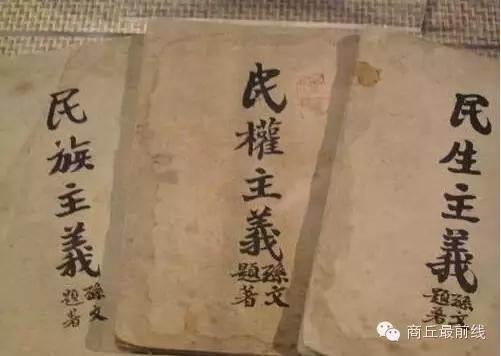 民族主義
孫文
題著
民權主義
孫文
題著
民生主義
孫文
題著
商丘最前线